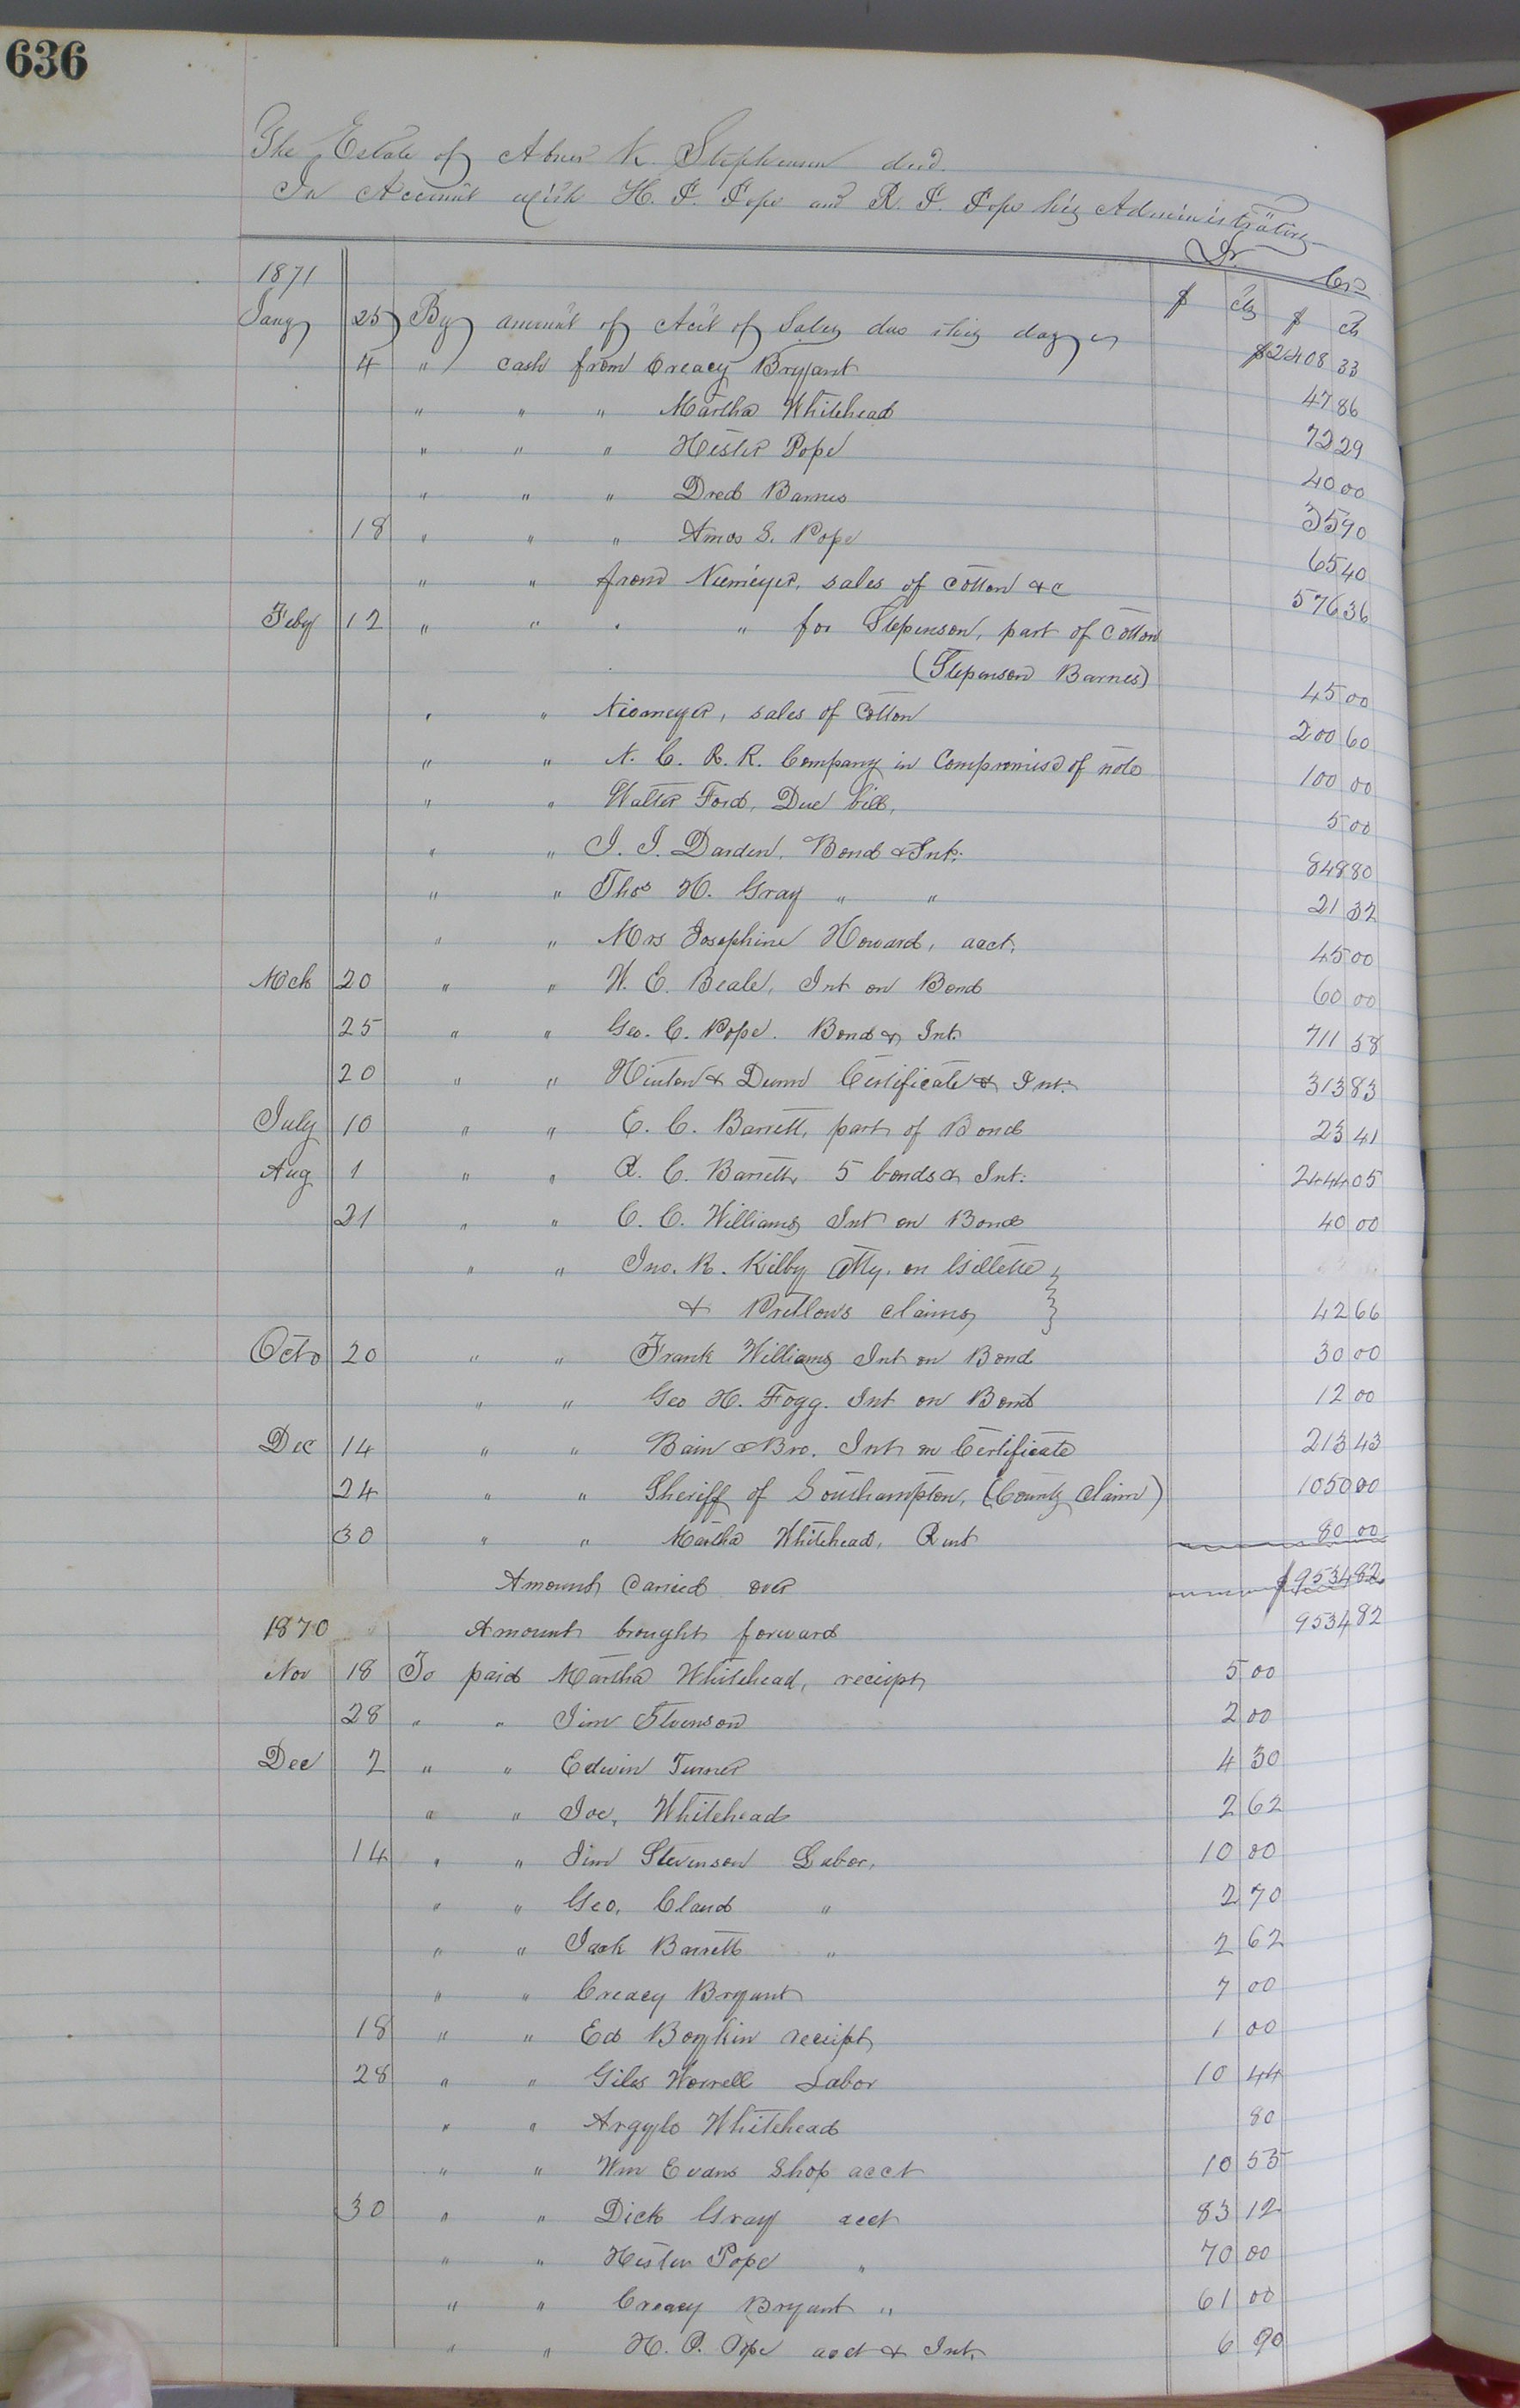 636
The Estate of Abner K. Stephenson decd.
In Account with H. P. Pope and R. P. Pope his Administrators
Dr. Crs
1871 $ cts $ cts
Jany 25 By amount of Acct of Sales due this day is $2408 33
4 " cash from Creacy Bryant 47 86
" " " Martha Whitehead 72 29
" " " Hester Pope 40 00
" " " Dred Barnes 35 90
18 " " " Amos S. Pope 65 40
" " from Niemeyer, sales of cotton &c 576 36
Feby 12 " " " " for Stepenson, part of Cotton
(Stepenson Barnes) 45 00
" " Niemeyer, sales of Cotton 200 60
" " N. C. R. R. Company in Compromise of note 100 00
" " Walter Ford, Due bill, 5 00
" " J. J. Darden, Bond & Int: 848 80
" " Thos H. Gray " " 21 32
" " Mrs Josephine Howard, acct, 45 00
Mch 20 " " W. E. Beale, Int on Bond 60 00
25 " " Geo. C. Pope. Bond & Int. 711 58
20 " " Hinton & Dunn Certificate & Int: 313 83
July 10 " " E. C. Barrett, part of Bond 23 41
Aug 1 " " R. C. Barrett, 5 bonds & Int: 2444 05
21 " " C. C. Williams Int on Bond 40 00
" " Jno. R. Kilby Atty. on Gillette }
& Pretlows claims } 42 66
Octo 20 " " Frank Williams Int on Bond 30 00
" " Geo H. Fogg. Int on Bond 12 00
Dec 14 " " Bain & Bro. Int on Certificate 213 43
24 " " Sheriff of Southampton, (County Claim) 1050 00
30 " " Martha Whitehead, Rent 80 00
Amount Carried over $9534 82
1870 Amount brought forward 9534 82
Nov 18 To paid Martha Whitehead, receipt 5 00
28 " " Jim Stvenson 2 00
Dec 2 " " Edwin Turner 4 30
" " Joe, Whitehead 2 62
14 " " Jim Stevenson Labor, 10 00
" " Geo, Claud " 2 70
" " Jack Barrett " 2 62
" " Creacy Bryant 7 00
18 " " Ed Boykin receipt 1 00
28 " " Giles Worrell Labor 10 44
" " Argylo Whitehead 80
" " Wm Evans Shop acct 10 55
30 " " Dick Gray acct 83 12
" " Hester Pope " 70 00
" " Creacy Bryant " 61 00
" " H. P. Pope acct & Int. 6 90